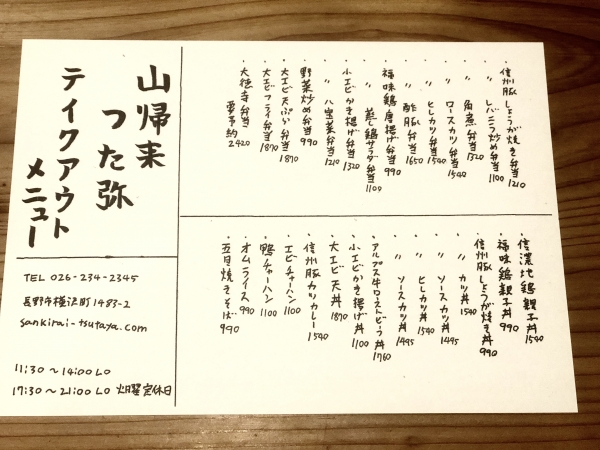 山帰来
つた弥
テイクアウト
メニュー
TEL 026-234-2345
長野市横沢町1483-2
sankirai-tsutaya.com
11:30～14:00LO
17:30～21:00LO 火曜定休日
・信州豚しょうが焼き弁当1210
・〃 レバニラ炒め弁当1100
・〃 角煮弁当1320
・〃 ロースカツ弁当1540
・〃 ヒレカツ弁当1540
・〃 酢豚弁当1650
・福味鶏唐揚げ弁当990
・〃 蒸し鶏サラダ弁当1100
・小エビかき揚げ弁当1320
・〃 八宝菜弁当1210
・野菜炒め弁当990
・大エビ天ぷら弁当1870
・大エビフライ弁当1870
・大徳寺弁当 要予約2420
・信濃地鶏親子丼1540
・福味鶏親子丼990
・信州豚しょうが焼き丼990
・〃 カツ丼1540
・〃 ソースカツ丼1495
・〃 ヒレカツ丼1540
・〃 ソースカツ丼1495
・アルプス牛ローストビーフ丼1760
・小エビかき揚げ丼1100
・大エビ天丼1870
・信州豚カツカレー1540
・エビチャーハン1100
・鴨チャーハン1100
・オムライス990
・五目焼きそば990